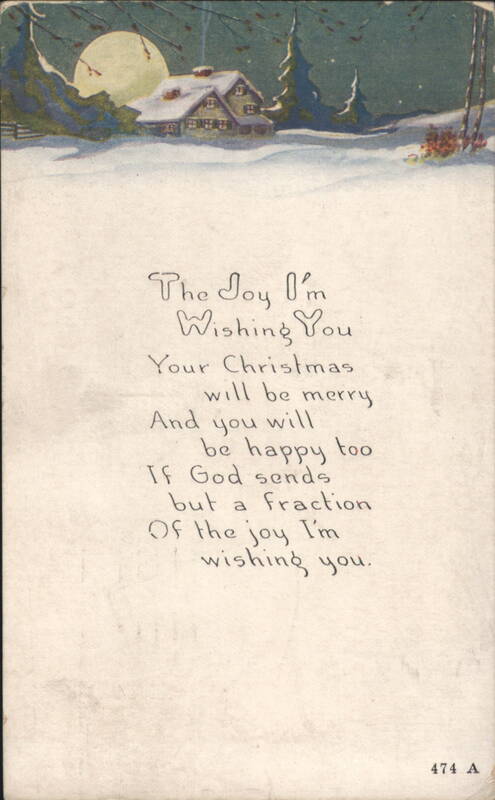 The Joy I'm
Wishing You
Your Christmas
will be merry
And you will
be happy too
If God sends
but a fraction
Of the joy I'm
wishing you.
474 A